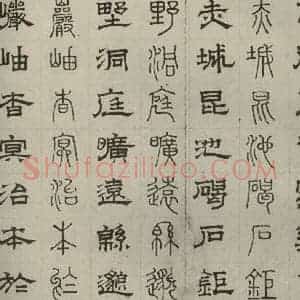 赤城昆池碣石鉅
赤城昆池碣石鉅
野洞庭曠遠緜邈
洞庭曠遠緜邈
巖岫杳冥治本於
巖岫杳冥治本於
Shufaziliao.com